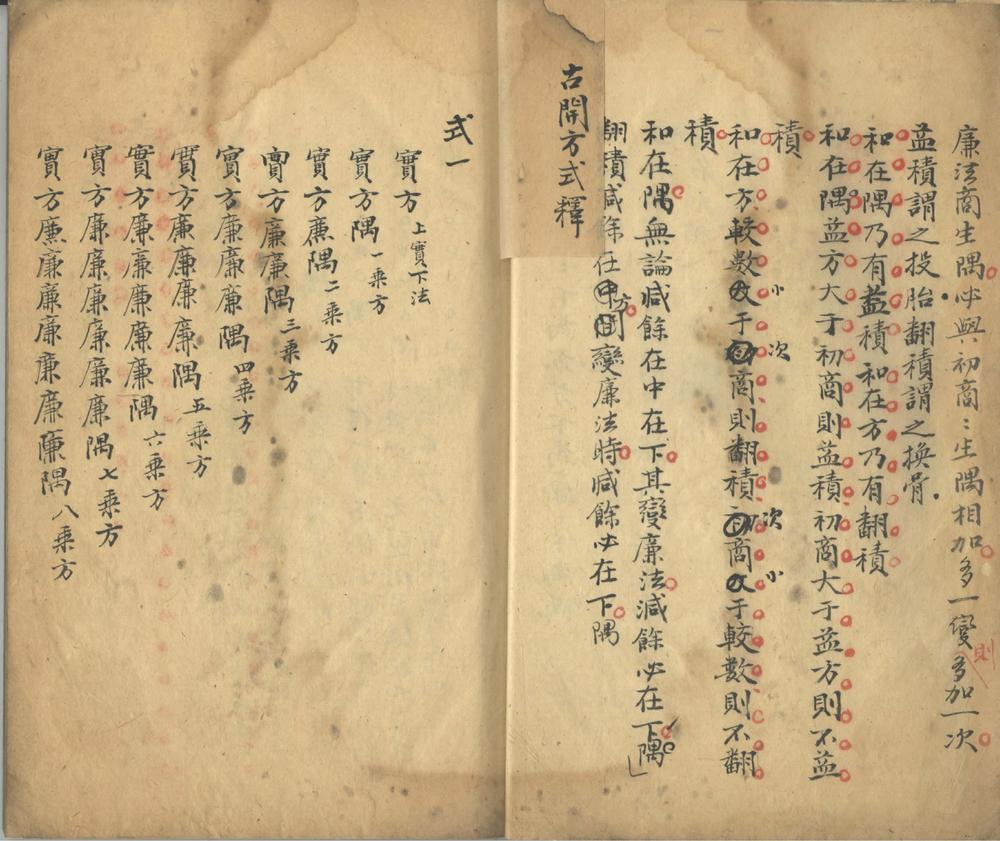 廉法商生隅必與初商〻生隅相加多一變則多加一次
益積謂之投胎翻積謂之換骨
和在隅乃有益積和在方乃有翻積
和在隅益方大于初商則益積初商大于益方則不益
積
和在方較數小于次商則翻積次商小于較數則不翻
積
和在隅無論減餘在中在下其變廉法減餘必在下隅
翻積減餘在方變廉法時減餘必在下隅
古開方式釋
式一
實方上實下法
實方隅一乘方
實方廉隅二乘方
實方廉廉隅三乘方
實方廉廉廉隅四乘方
實方廉廉廉廉隅五乘方
實方廉廉廉廉廉隅六乘方
實方廉廉廉廉廉廉隅七乘方
實方廉廉廉廉廉廉廉隅八乘方